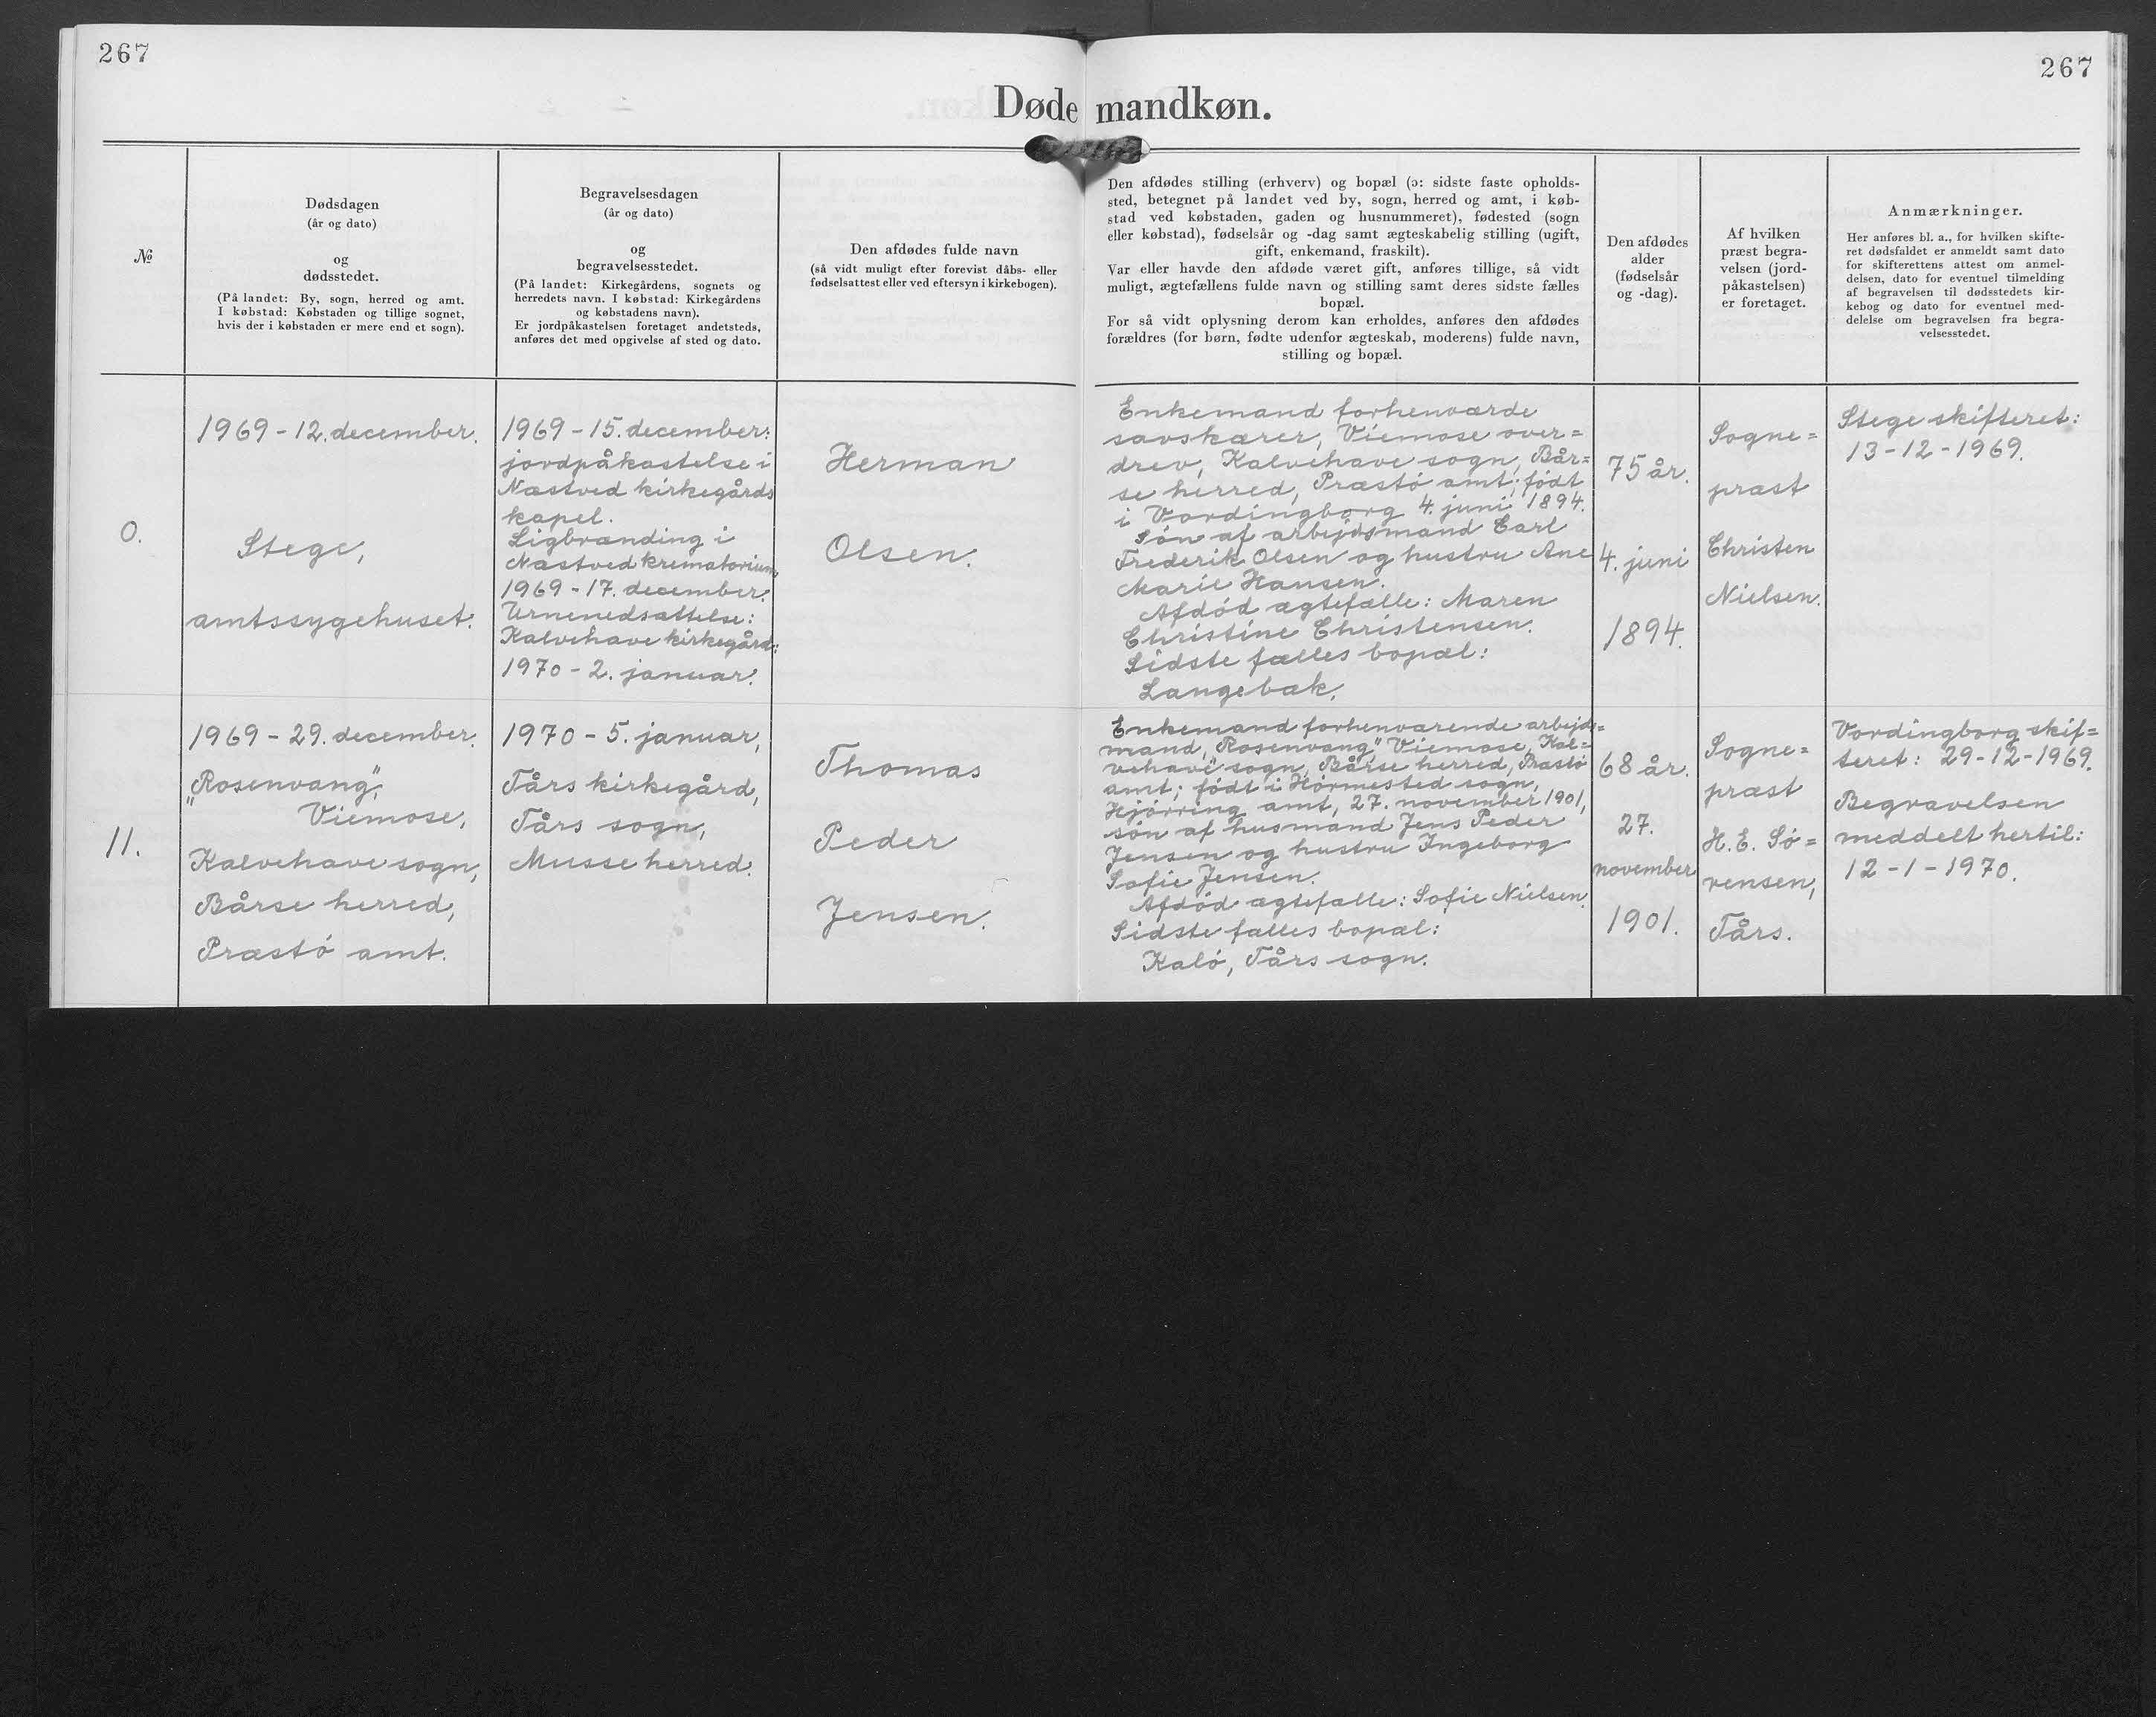 267
267
Døde mandkøn.
№
Dødsdagen
(år og dato)
og
dødsstedet.
(På landet: By, sogn, herred og amt.
I købstad: Købstaden og tillige sognet,
hvis der i købstaden er mere end et sogn).
Begravelsesdagen
(år og dato)
og
begravelsesstedet.
(På landet: Kirkegårdens, sognets og
herredets navn. I købstad: Kirkegårdens
og købstadens navn).
Er jordpåkastelsen foretaget andetsteds,
anføres det med opgivelse af sted og dato.
Den afdødes fulde navn
(så vidt muligt efter forevist dåbs- eller
fødselsattest eller ved eftersyn i kirkebogen).
Den afdødes stilling (erhverv) og bopæl (ɔ: sidste faste opholds-
sted, betegnet på landet ved by, sogn, herred og amt, i køb-
stad ved købstaden, gaden og husnummeret), fødested (sogn
eller købstad), fødselsår og -dag samt ægteskabelig stilling (ugift,
gift, enkemand, fraskilt).
Var eller havde den afdøde været gift, anføres tillige, så vidt
muligt, ægtefællens fulde navn og stilling samt deres sidste fælles
bopæl.
For så vidt oplysning derom kan erholdes, anføres den afdødes
forældres (for børn, fødte udenfor ægteskab, moderens) fulde navn,
stilling og bopæl.
Den afdødes
alder
(fødselsår
og -dag).
Af hvilken
præst begra-
velsen (jord-
påkastelsen)
er foretaget.
Anmærkninger.
Her anføres bl. a., for hvilken skifte-
ret dødsfaldet er anmeldt samt dato
for skifterettens attest om anmel-
delsen, dato for eventuel tilmelding
af begravelsen til dødsstedets kir-
kebog og dato for eventuel med-
delelse om begravelsen fra begra-
velsesstedet.
0.
1969 - 12. december.
Stege,
amtssygehuset.
1969 - 15. december:
jordpåkastelse i
Næstved kirkegårds
kapel.
Ligbrænding i
Næstved krematorium
1969 - 17. december.
Urnenedsættelse:
Kalvehave kirkegård:
1970 - 2. januar.
Herman
Olsen.
Enkemand forhenværde
savskærer, Viemose over=
drev, Kalvehave sogn, Bår=
se herred, Præstö amt; født
i Vordingborg 4. juni 1894.
Sön af arbejdsmand Carl
Frederik Olsen og hustru Ane
Marie Hansen.
Afdød ægtefælle: Maren
Christine Christensen.
Sidste fælles bopæl:
Langebæk.
75 år.
4. juni
1894.
Sogne=
præst
Christen
Nielsen.
Stege skifteret:
13-12-1969.
11.
1969 - 29. december.
"Rosenvang",
Viemose,
Kalvehave sogn,
Bårse herred,
Præstö amt.
1970 - 5. januar,
Tårs kirkegård,
Tårs sogn,
Musse herred.
Thomas
Peder
Jensen.
Enkemand forhenværende arbejds=
mand, "Rosenvang", Viemose, Kal=
vehave sogn, Bårse herred, Præstö
amt; födt i Hörmested sogn,
Hjörring amt, 27. november 1901,
sön af husmand Jens Peder
Jensen og hustru Ingeborg
Sofie Jensen.
Afdöd ægtefælle: Sofie Nielsen.
Sidste fælles bopæl:
Kalö, Tårs sogn.
68 år.
27.
november
1901.
Sogne=
præst
H. E. Sö=
rensen,
Tårs.
Vordingborg skif=
teret: 29-12-1969.
Begravelsen
meddelt hertil:
12-1-1970.